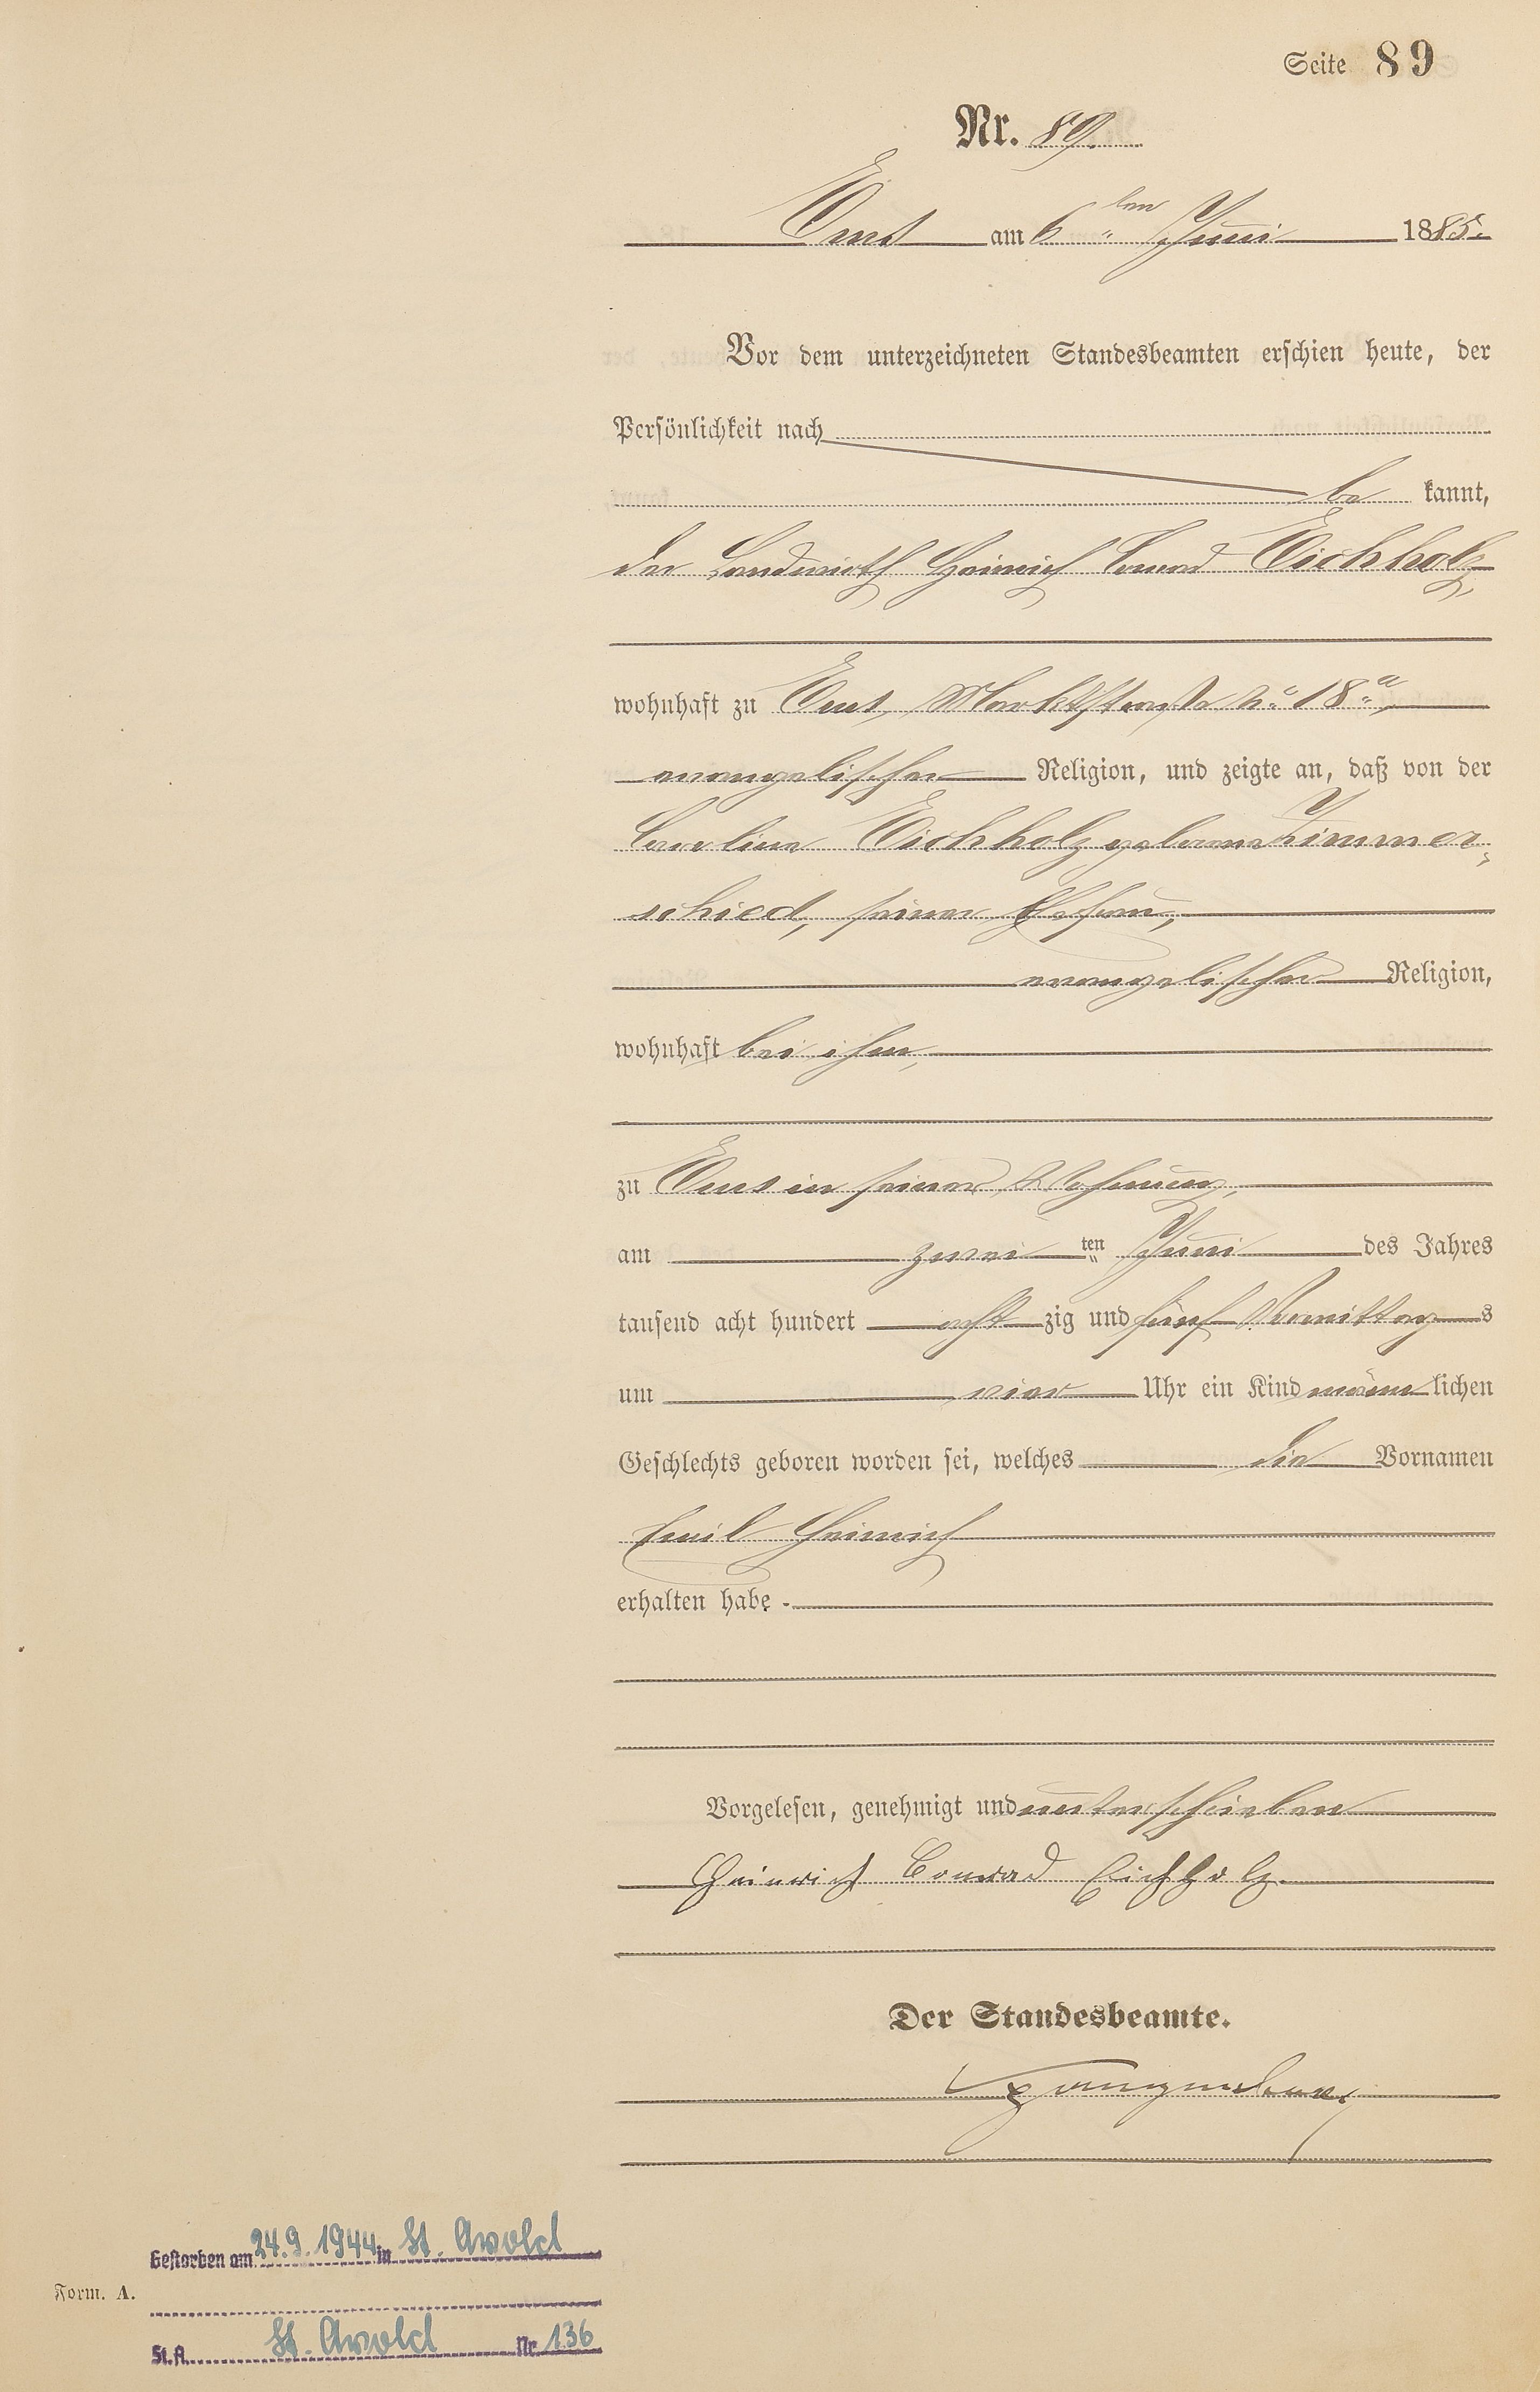 Seite 89
Nr. 89.
Ems am 6 ten Juni 1885.
Vor dem unterzeichneten Standesbeamten erschien heute, der
Persönlichkeit nach
be kannt,
der Landwirth Heinrich Conrad Eichholz,
wohnhaft zu Ems, Marktstraße No 18 a,
evangelischer Religion, und zeigte an, daß von der
Caroline Eichholz geborene Zimmer-
schied, seiner Ehefrau,
evangelischer Religion,
wohnhaft bei ihm,
zu Ems in seiner Wohnung,
am zwei ten Juni des Jahres
tausend acht hundert acht zig und fünf Vormittag s
um vier Uhr ein Kind männ lichen
Geschlechts geboren worden sei, welches die Vornamen
Emil Heinrich
erhalten habe.
Vorgelesen, genehmigt und unterschrieben
Heinrich Conrad Eichholz.
Der Standesbeamte.
Gestorben am 24.9.1944 in St. Avold
Form. A.
St.A. St. Avold Nr. 136